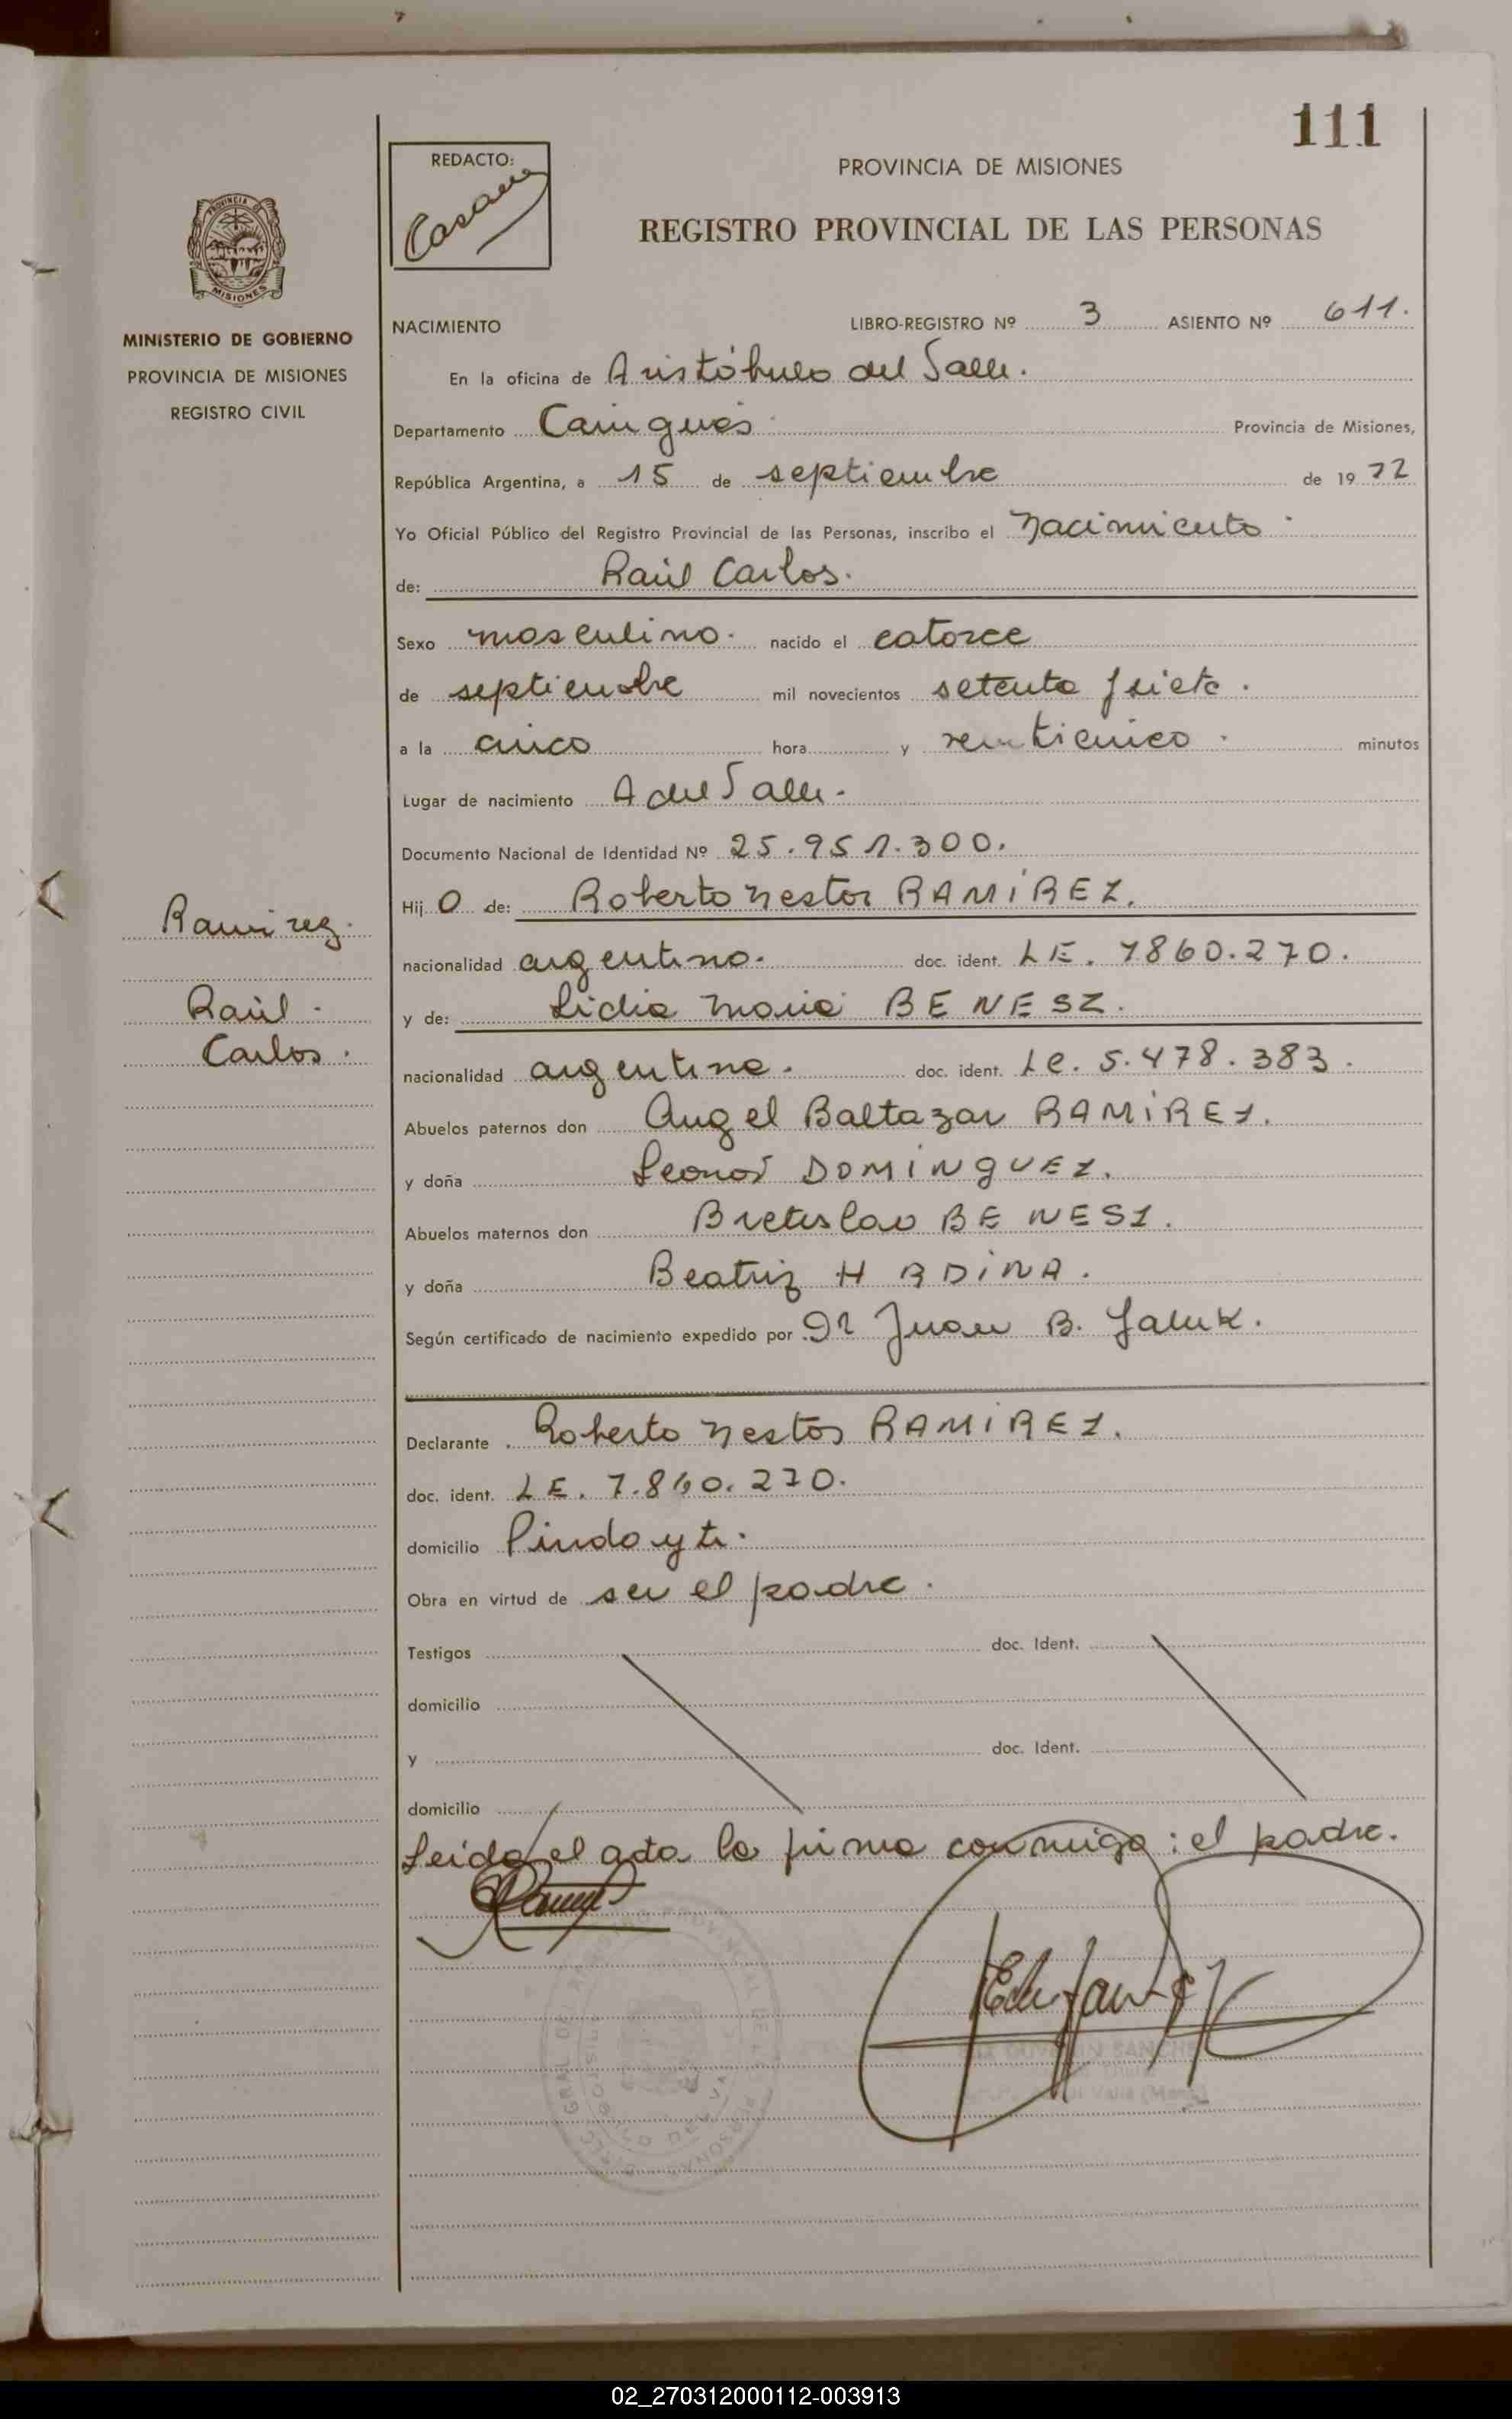 111
REDACTO:
PROVINCIA DE MISIONES
REGISTRO PROVINCIAL DE LAS PERSONAS
PROVINCIA
MISIONES
MINISTERIO DE GOBIERNO
PROVINCIA DE MISIONES
REGISTRO CIVIL
NACIMIENTO LIBRO-REGISTRO Nº 3 ASIENTO Nº 611.
En la oficina de Aristóbulo del Valle.
Departamento Cainguás Provincia de Misiones,
República Argentina, a 15 de septiembre de 19 77
Yo Oficial Público del Registro Provincial de las Personas, inscribo el Nacimiento
de: Raúl Carlos.
Sexo masculino. nacido el catorce
de septiembre mil novecientos setenta y siete.
a la cinco hora y veinticinco minutos
Lugar de nacimiento A del Valle.
Documento Nacional de Identidad Nº 25.951.300.
Hij o de: Roberto Nestor RAMÍREZ.
nacionalidad argentino. doc. ident. LE. 7860.270.
y de: Lidia María BENESZ.
nacionalidad argentina. doc. ident. Lc. 5.478.383.
Abuelos paternos don Angel Baltazar RAMÍREZ.
y doña Leonor DOMINGUEZ.
Abuelos maternos don Bretislao BENESZ.
y doña Beatriz HRDINA.
Según certificado de nacimiento expedido por Dr Juan B. Yaluk.
Ramirez.
Raúl
Carlos.
Declarante Roberto Nestor RAMIREZ.
doc. ident. LE. 7.860.270.
domicilio Pindoyti.
Obra en virtud de ser el padre.
Testigos doc. Ident.
domicilio
y doc. Ident.
domicilio
Leida el acta la firma conmigo: el padre.
02_270312000112-003913